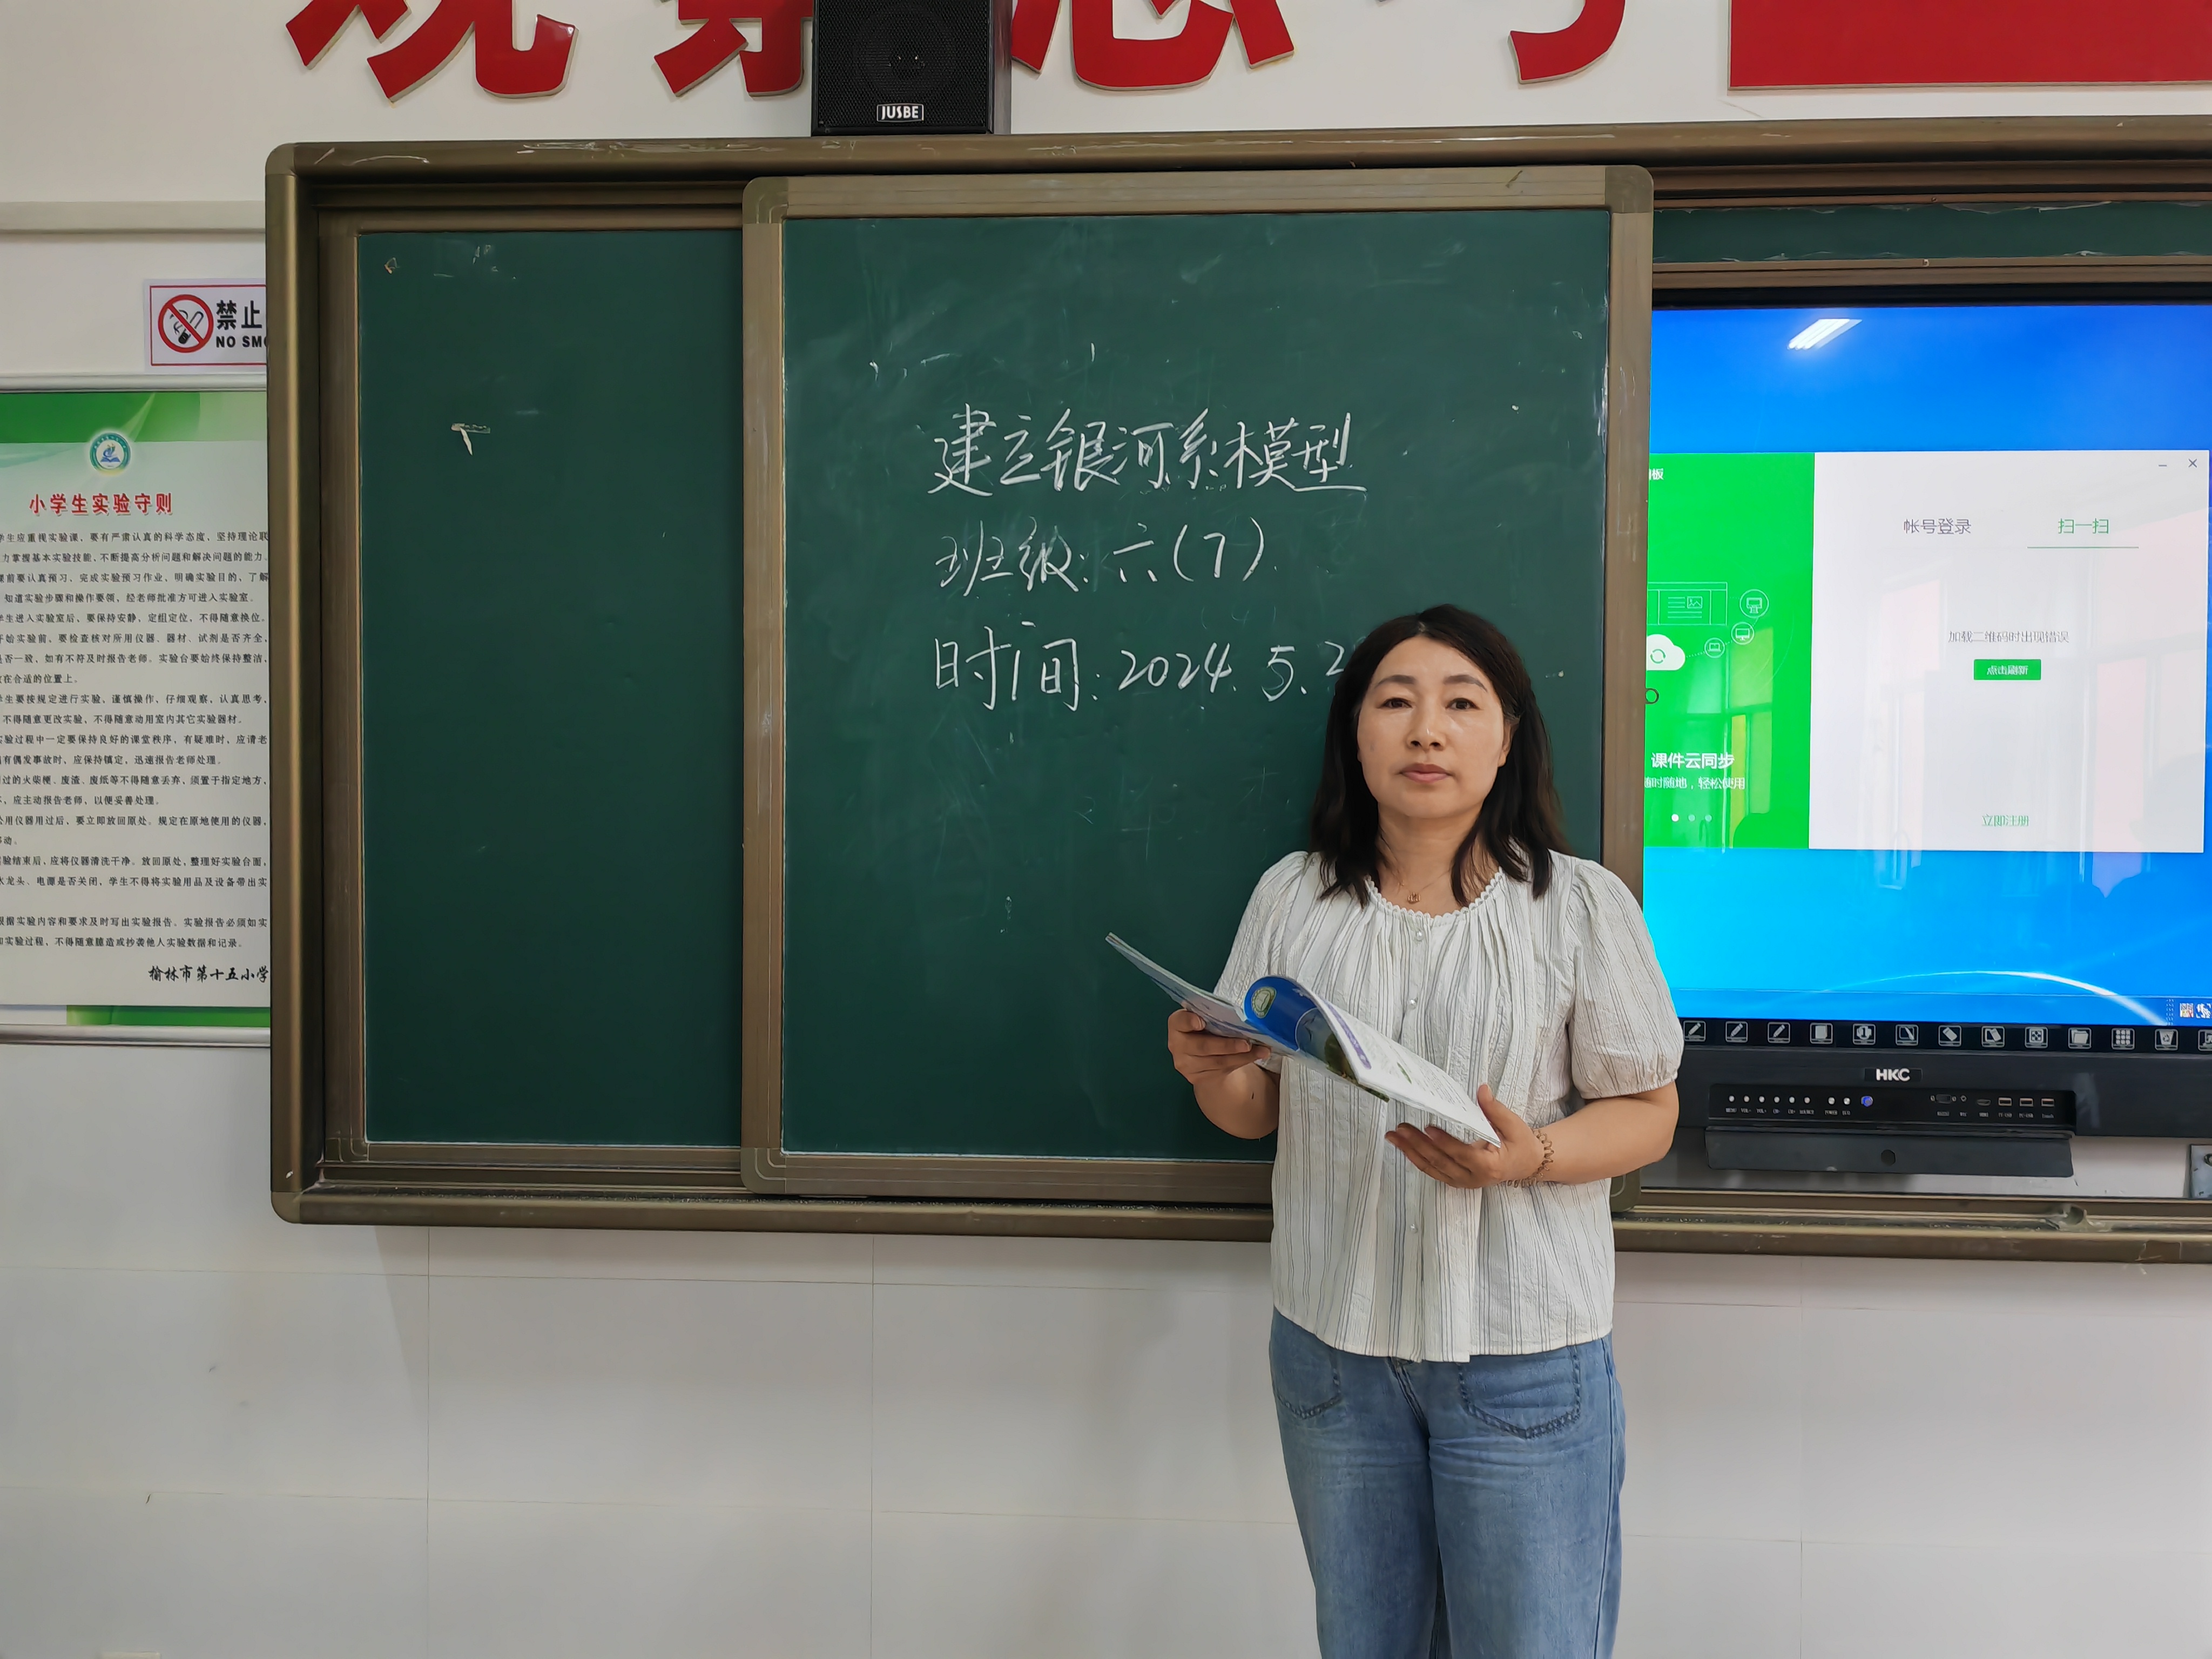 JUSBE
禁止
NO SM
小学生实验守则
学生应重视实验课、要有严肃认真的科学态度、坚持理论联
力掌握基本实验技能,不断提高分析问题和解决问题的能力。
课前要认真预习、完成实验预习作业、明确实验目的、了解
知道实验步骤和操作要领、经老师批准方可进入实验室。
学生进入实验室后、要保持安静、定组定位、不得随意换位。
开始实验前、要检查核对所用仪器、器材、试剂是否齐全,
是否一致,如有不符及时报告老师。实验台要始终保持整洁,
在合适的位置上。
学生要按规定进行实验、谨慎操作、仔细观察、认真思考,
不得随意更改实验、不得随意动用室内其它实验器材。
实验过程中一定要保持良好的课堂秩序,有疑难时、应请老
有偶发事故时、应保持镇定、迅速报告老师处理。
过的火柴梗、废渣、废纸等不得随意丢弃、须置于指定地方,
应主动报告老师、以便妥善处理。
公用仪器用过后、要立即放回原处。规定在原地使用的仪器,
动。
实验结束后,应将仪器清洗干净、放回原处,整理好实验台面,
水龙头、电源是否关闭,学生不得将实验用品及设备带出实
根据实验内容和要求及时写出实验报告。实验报告必须如实
实验过程、不得随意臆造或抄袭他人实验数据和记录。
榆林市第十五小学
建立银河系模型
班级:六(7)
时间:2024.5.2
板
帐号登录
扫一扫
加载二维码时出现错误
点击刷新
课件云同步
随时随地,轻松使用
立即注册
HKC